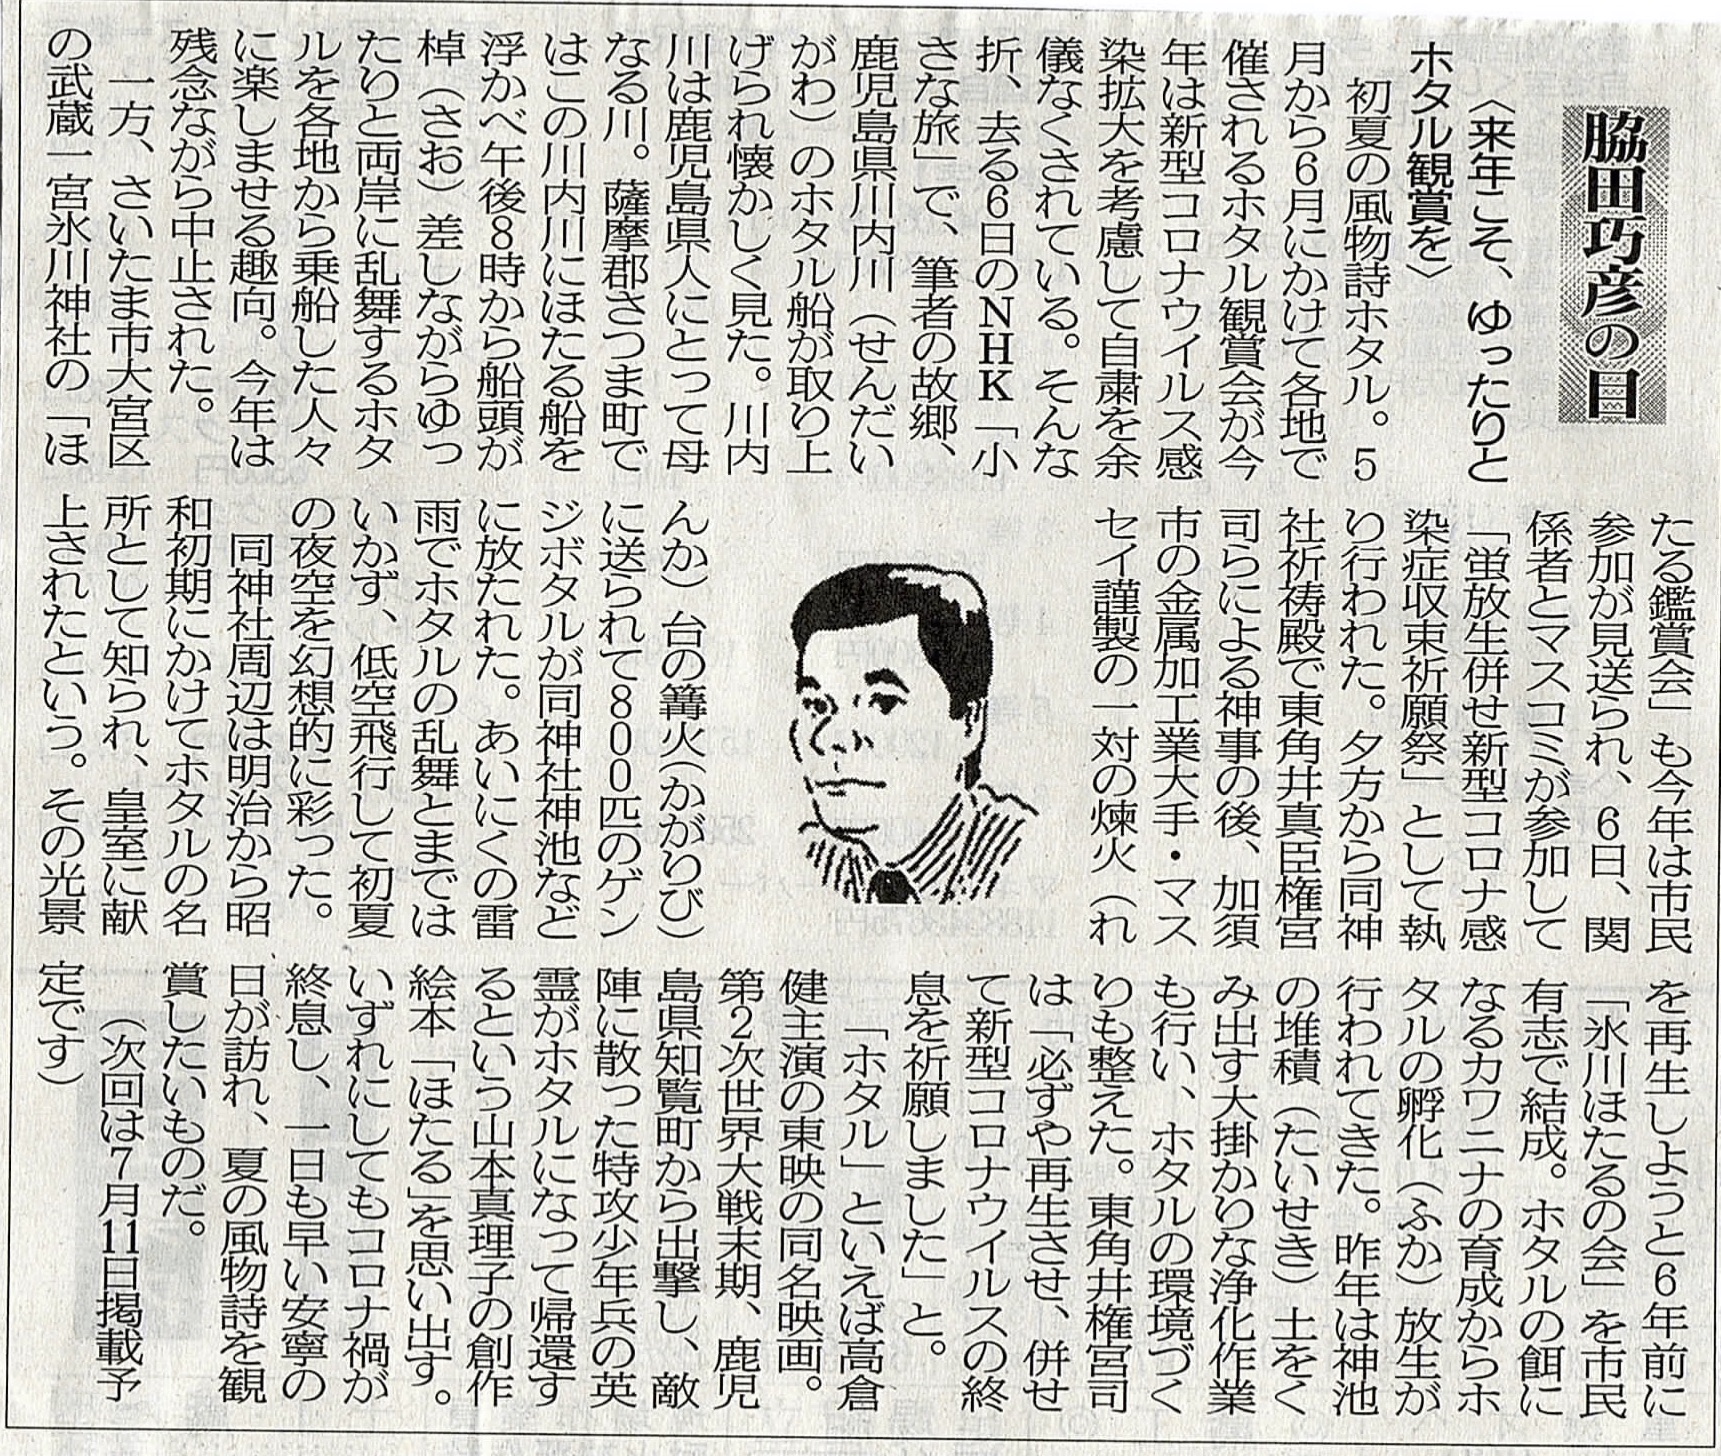 脇田巧彦の目
〈来年こそ、ゆったりと
ホタル観賞を〉
初夏の風物詩ホタル。5
月から6月にかけて各地で
催されるホタル観賞会が今
年は新型コロナウイルス感
染拡大を考慮して自粛を余
儀なくされている。そんな
折、去る6日のNHK「小
さな旅」で、筆者の故郷、
鹿児島県川内川（せんだい
がわ）のホタル船が取り上
げられ懐かしく見た。川内
川は鹿児島県人にとって母
なる川。薩摩郡さつま町で
はこの川内川にほたる船を
浮かべ午後8時から船頭が
棹（さお）差しながらゆっ
たりと両岸に乱舞するホタ
ルを各地から乗船した人々
に楽しませる趣向。今年は
残念ながら中止された。
一方、さいたま市大宮区
の武蔵一宮氷川神社の「ほ
たる鑑賞会」も今年は市民
参加が見送られ、6日、関
係者とマスコミが参加して
「蛍放生併せ新型コロナ感
染症収束祈願祭」として執
り行われた。夕方から同神
社祈祷殿で東角井真臣権宮
司らによる神事の後、加須
市の金属加工業大手・マス
セイ謹製の一対の煉火（れ
んか）台の篝火（かがりび）
に送られて800匹のゲン
ジボタルが同神社神池など
に放たれた。あいにくの雷
雨でホタルの乱舞とまでは
いかず、低空飛行して初夏
の夜空を幻想的に彩った。
同神社周辺は明治から昭
和初期にかけてホタルの名
所として知られ、皇室に献
上されたという。その光景
を再生しようと6年前に
「氷川ほたるの会」を市民
有志で結成。ホタルの餌に
なるカワニナの育成からホ
タルの孵化（ふか）放生が
行われてきた。昨年は神池
の堆積（たいせき）土をく
み出す大掛かりな浄化作業
も行い、ホタルの環境づく
りも整えた。東角井権宮司
は「必ずや再生させ、併せ
て新型コロナウイルスの終
息を祈願しました」と。
「ホタル」といえば高倉
健主演の東映の同名映画。
第2次世界大戦末期、鹿児
島県知覧町から出撃し、敵
陣に散った特攻少年兵の英
霊がホタルになって帰還す
るという山本真理子の創作
絵本「ほたる」を思い出す。
いずれにしてもコロナ禍が
終息し、一日も早い安寧の
日が訪れ、夏の風物詩を観
賞したいものだ。
（次回は7月11日掲載予
定です）